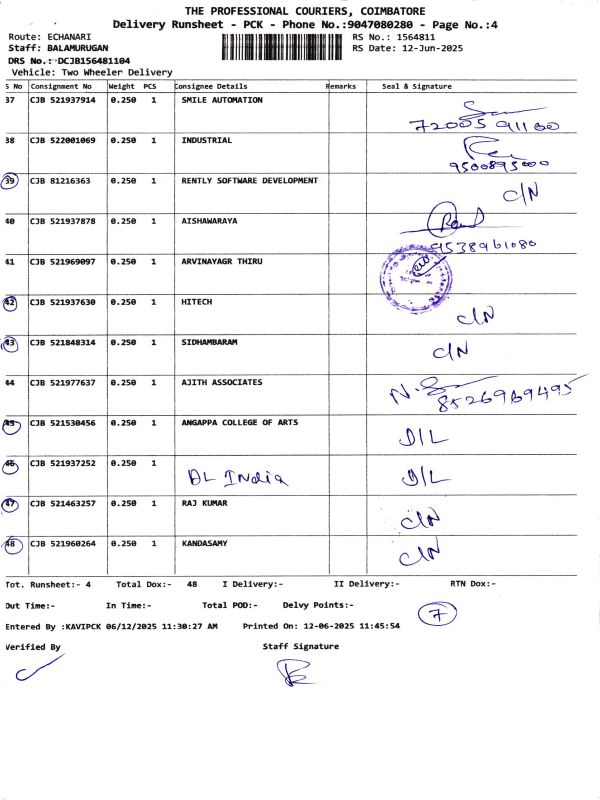 THE PROFESSIONAL COURIERS, COIMBATORE
Delivery Runsheet - PCK - Phone No.:9047080280 - Page No.:4
Route: ECHANARI RS No.: 1564811
Staff: BALAMURUGAN RS Date: 12-Jun-2025
DRS No.: DCJB156481104
Vehicle: Two Wheeler Delivery
S No Consignment No Weight PCS Consignee Details Remarks Seal & Signature
37 CJB 521937914 0.250 1 SMILE AUTOMATION
72005 91100
38 CJB 522001069 0.250 1 INDUSTRIAL
9500895000
39 CJB 81216363 0.250 1 RENTLY SOFTWARE DEVELOPMENT C/N
40 CJB 521937878 0.250 1 AISHAWARAYA
9538961080
41 CJB 521969097 0.250 1 ARVINAYAGR THIRU
42 CJB 521937630 0.250 1 HITECH C/N
43 CJB 521848314 0.250 1 SIDHAMBARAM C/N
44 CJB 521977637 0.250 1 AJITH ASSOCIATES
8526969495
45 CJB 521530456 0.250 1 ANGAPPA COLLEGE OF ARTS D/L
46 CJB 521937252 0.250 1 DL India D/L
47 CJB 521463257 0.250 1 RAJ KUMAR C/N
48 CJB 521960264 0.250 1 KANDASAMY C/N
Tot. Runsheet:- 4 Total Dox:- 48 I Delivery:- II Delivery:- RTN Dox:-
Out Time:- In Time:- Total POD:- Delvy Points:- 7
Entered By :KAVIPCK 06/12/2025 11:30:27 AM Printed On: 12-06-2025 11:45:54
Verified By Staff Signature